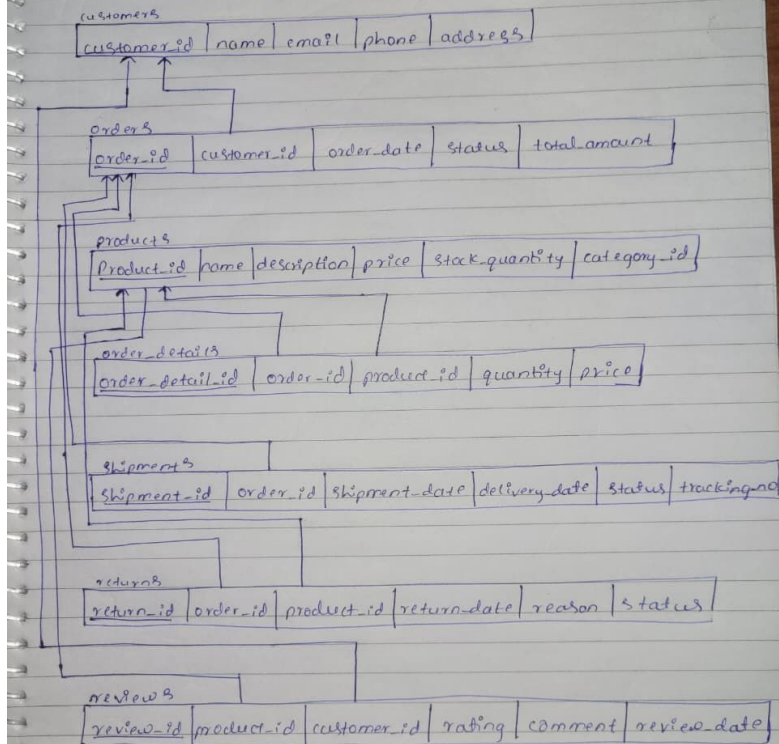 customers
customer_id name email phone address
orders
order_id customer_id order_date status total_amount
products
Product_id name description price stock_quantity category_id
order_details
order_detail_id order_id product_id quantity price
shipments
shipment_id order_id shipment_date delivery_date status tracking_no
returns
return_id order_id product_id return_date reason status
reviews
review_id product_id customer_id rating comment review_date